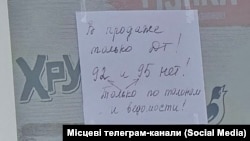 В продаже
только ДТ!
92 и 95 нет!
только по талонам
и ведомости!
ХРУ
Місцеві телеграм-канали (Social Media)